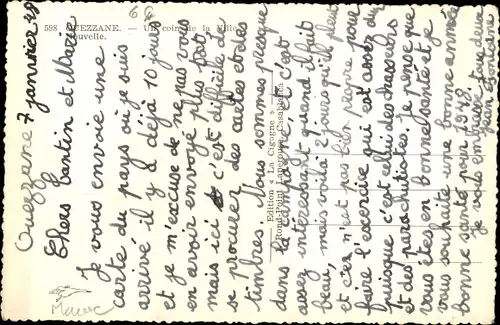 598 OUEZZANE. — Un coin de la Ville
Nouvelle.
Edition « La Cigogne »
Rond-Point Lapeyrouse, Casablanca
Ouezzane 7 janvier 48
Chers Tantin et Marie
Je vous envoie une
carte du pays où je suis
arrivé il y a déjà 10 jours
et je m'excuse de ne pas vous
en avoir envoyé plus tôt
mais ici c'est difficile de
se procurez des cartes et des
timbres. Nous sommes presque
dans la campagne c'est
assez intéressant quand il fait
beau, mais voilà 2 jours qu'il pleut
et ce n'est pas bien propre pour
faire l'exercice qui est assez dur
puisque c'est celui des chasseurs
et des parachutistes. Je pense que
vous êtes en bonne santé et je
vous souhaite une bonne année
bonne santé pour 1948.
Je vous embrasse tous deux
Jean
Maroc